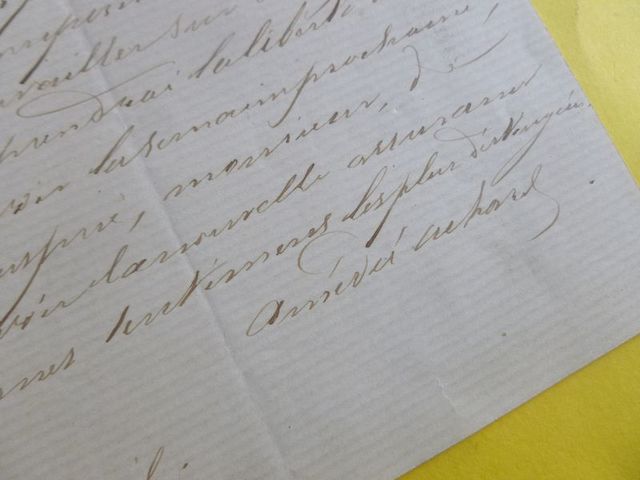 travailler sur
prendrai la liberté
voir la semaine prochaine,
prie, monsieur, de
voir la nouvelle assurance
mes sentiments les plus distingués.
amédée achard